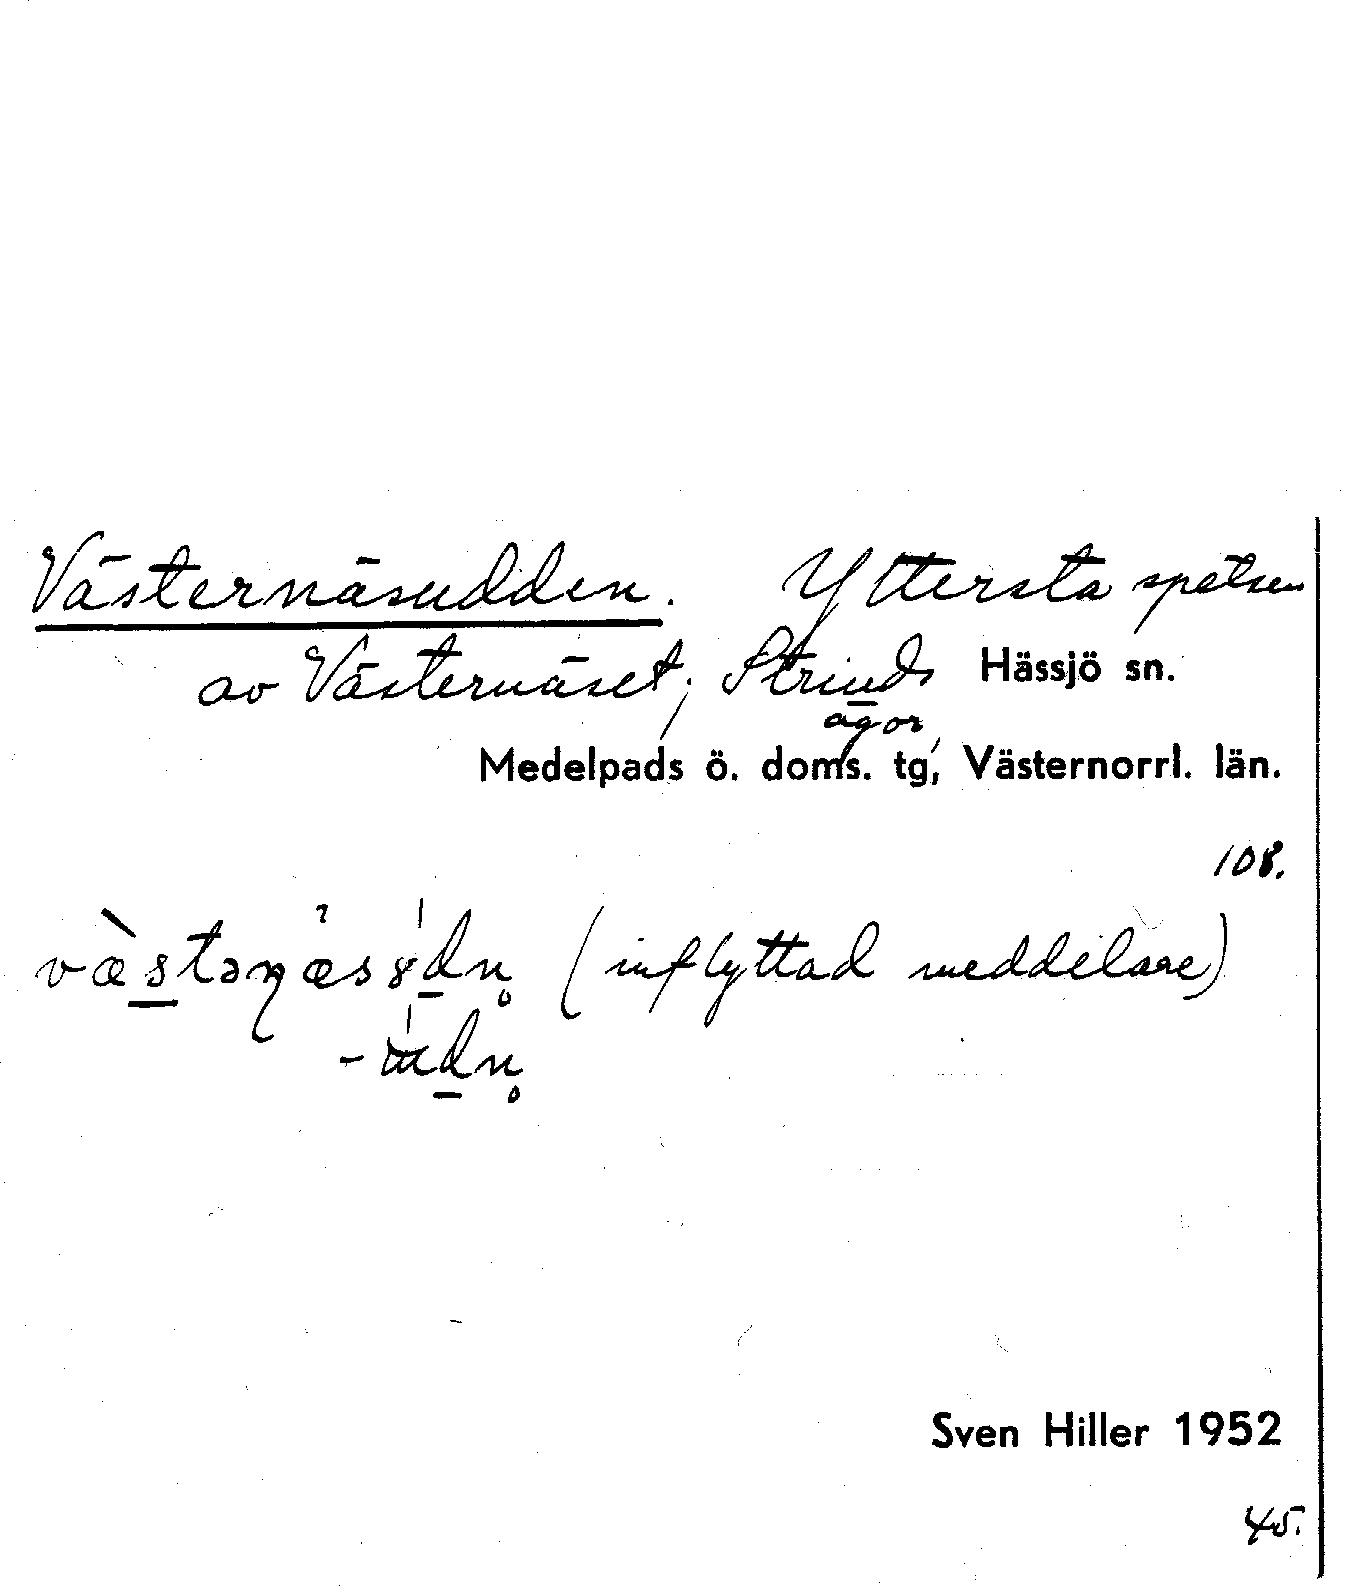 Västernäsudden. Yttersta spetsen
av Västernäset, Strinds Hässjö sn.
ägor,
Medelpads ö. doms. tg, Västernorrl. län.
108.
(inflyttad meddelare)
Sven Hiller 1952
45.